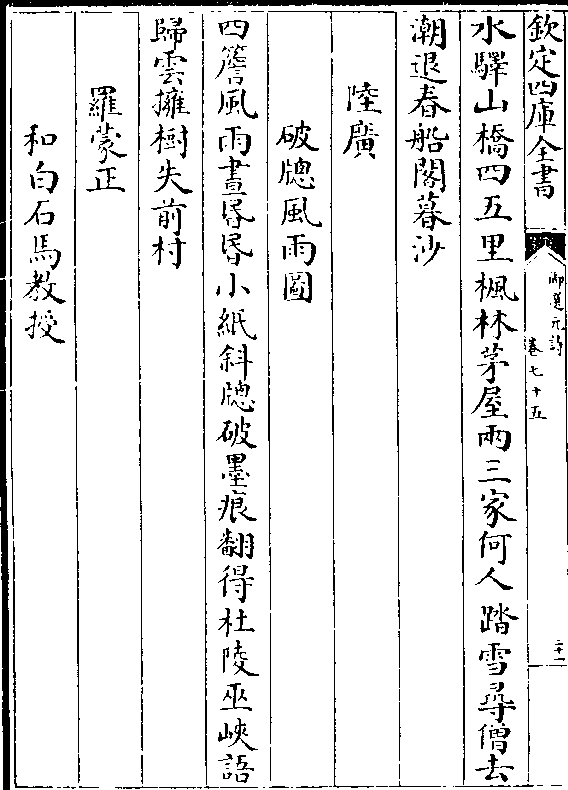 欽定四庫全書
御選元詩
卷七十五
二十一
水驛山橋四五里楓林茅屋兩三家何人踏雪尋僧去
潮退春船閣暮沙
陸廣
破牕風雨圖
四簷風雨晝昬昬小紙斜牕破墨痕翻得杜陵巫峽語
歸雲擁樹失前村
羅蒙正
和白石馬教授